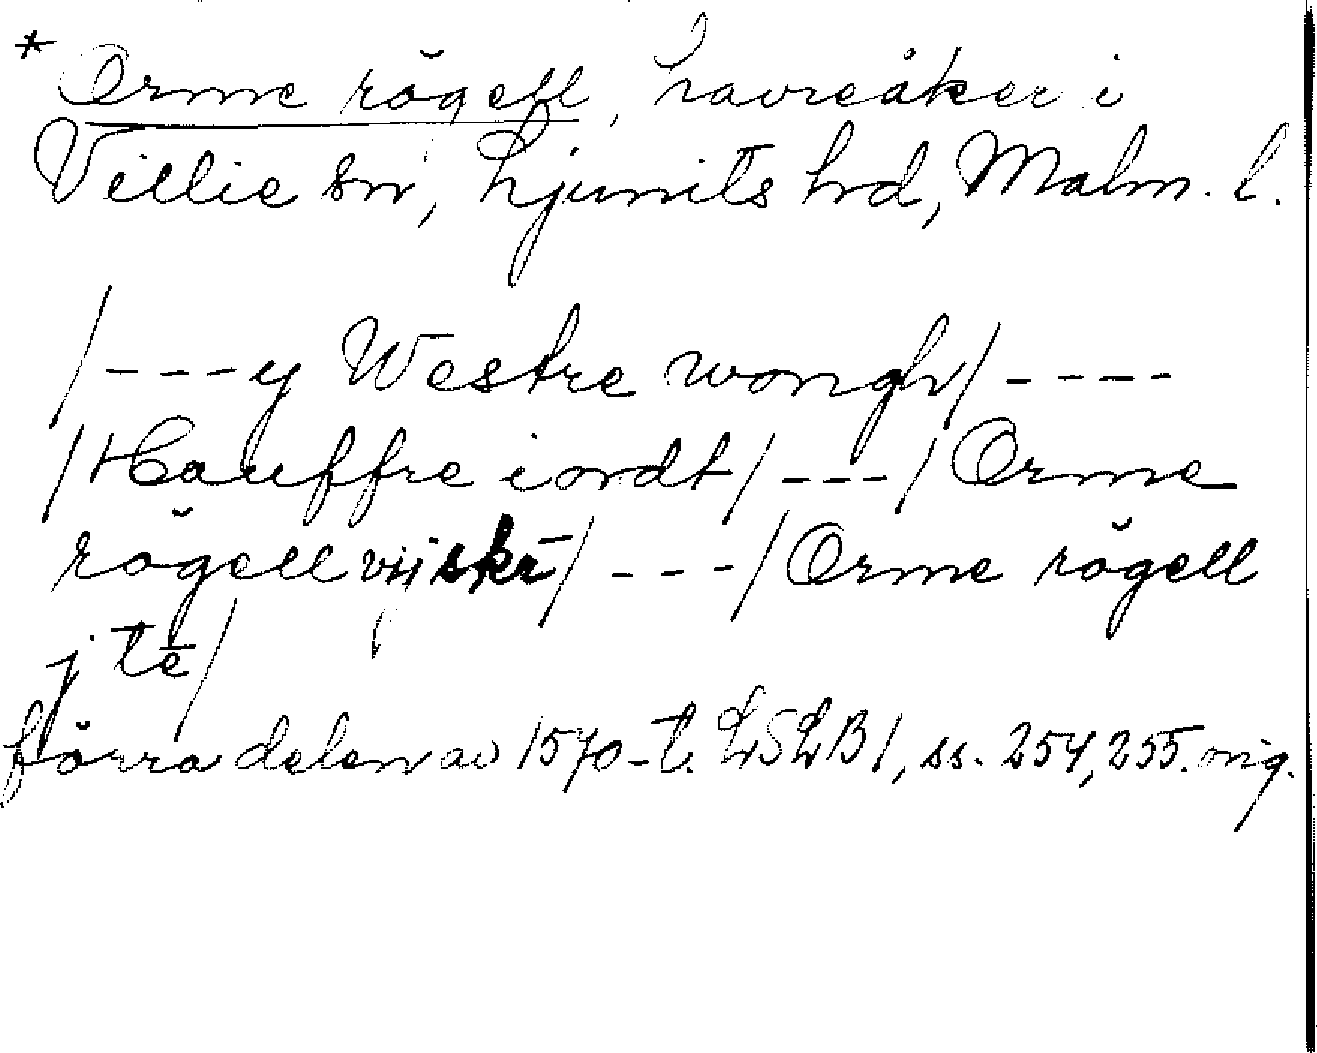 * Orme rögell, havreåker i
Villie sn, Ljunits hrd, Malm. l.
/---y Westre wongh/----
/Hauffre iordt/---/Orme
rögell vij skr̄/---/Orme rögell
j tē/
förra delen av 1570-t. LSLB 1, ss. 254, 255. orig.